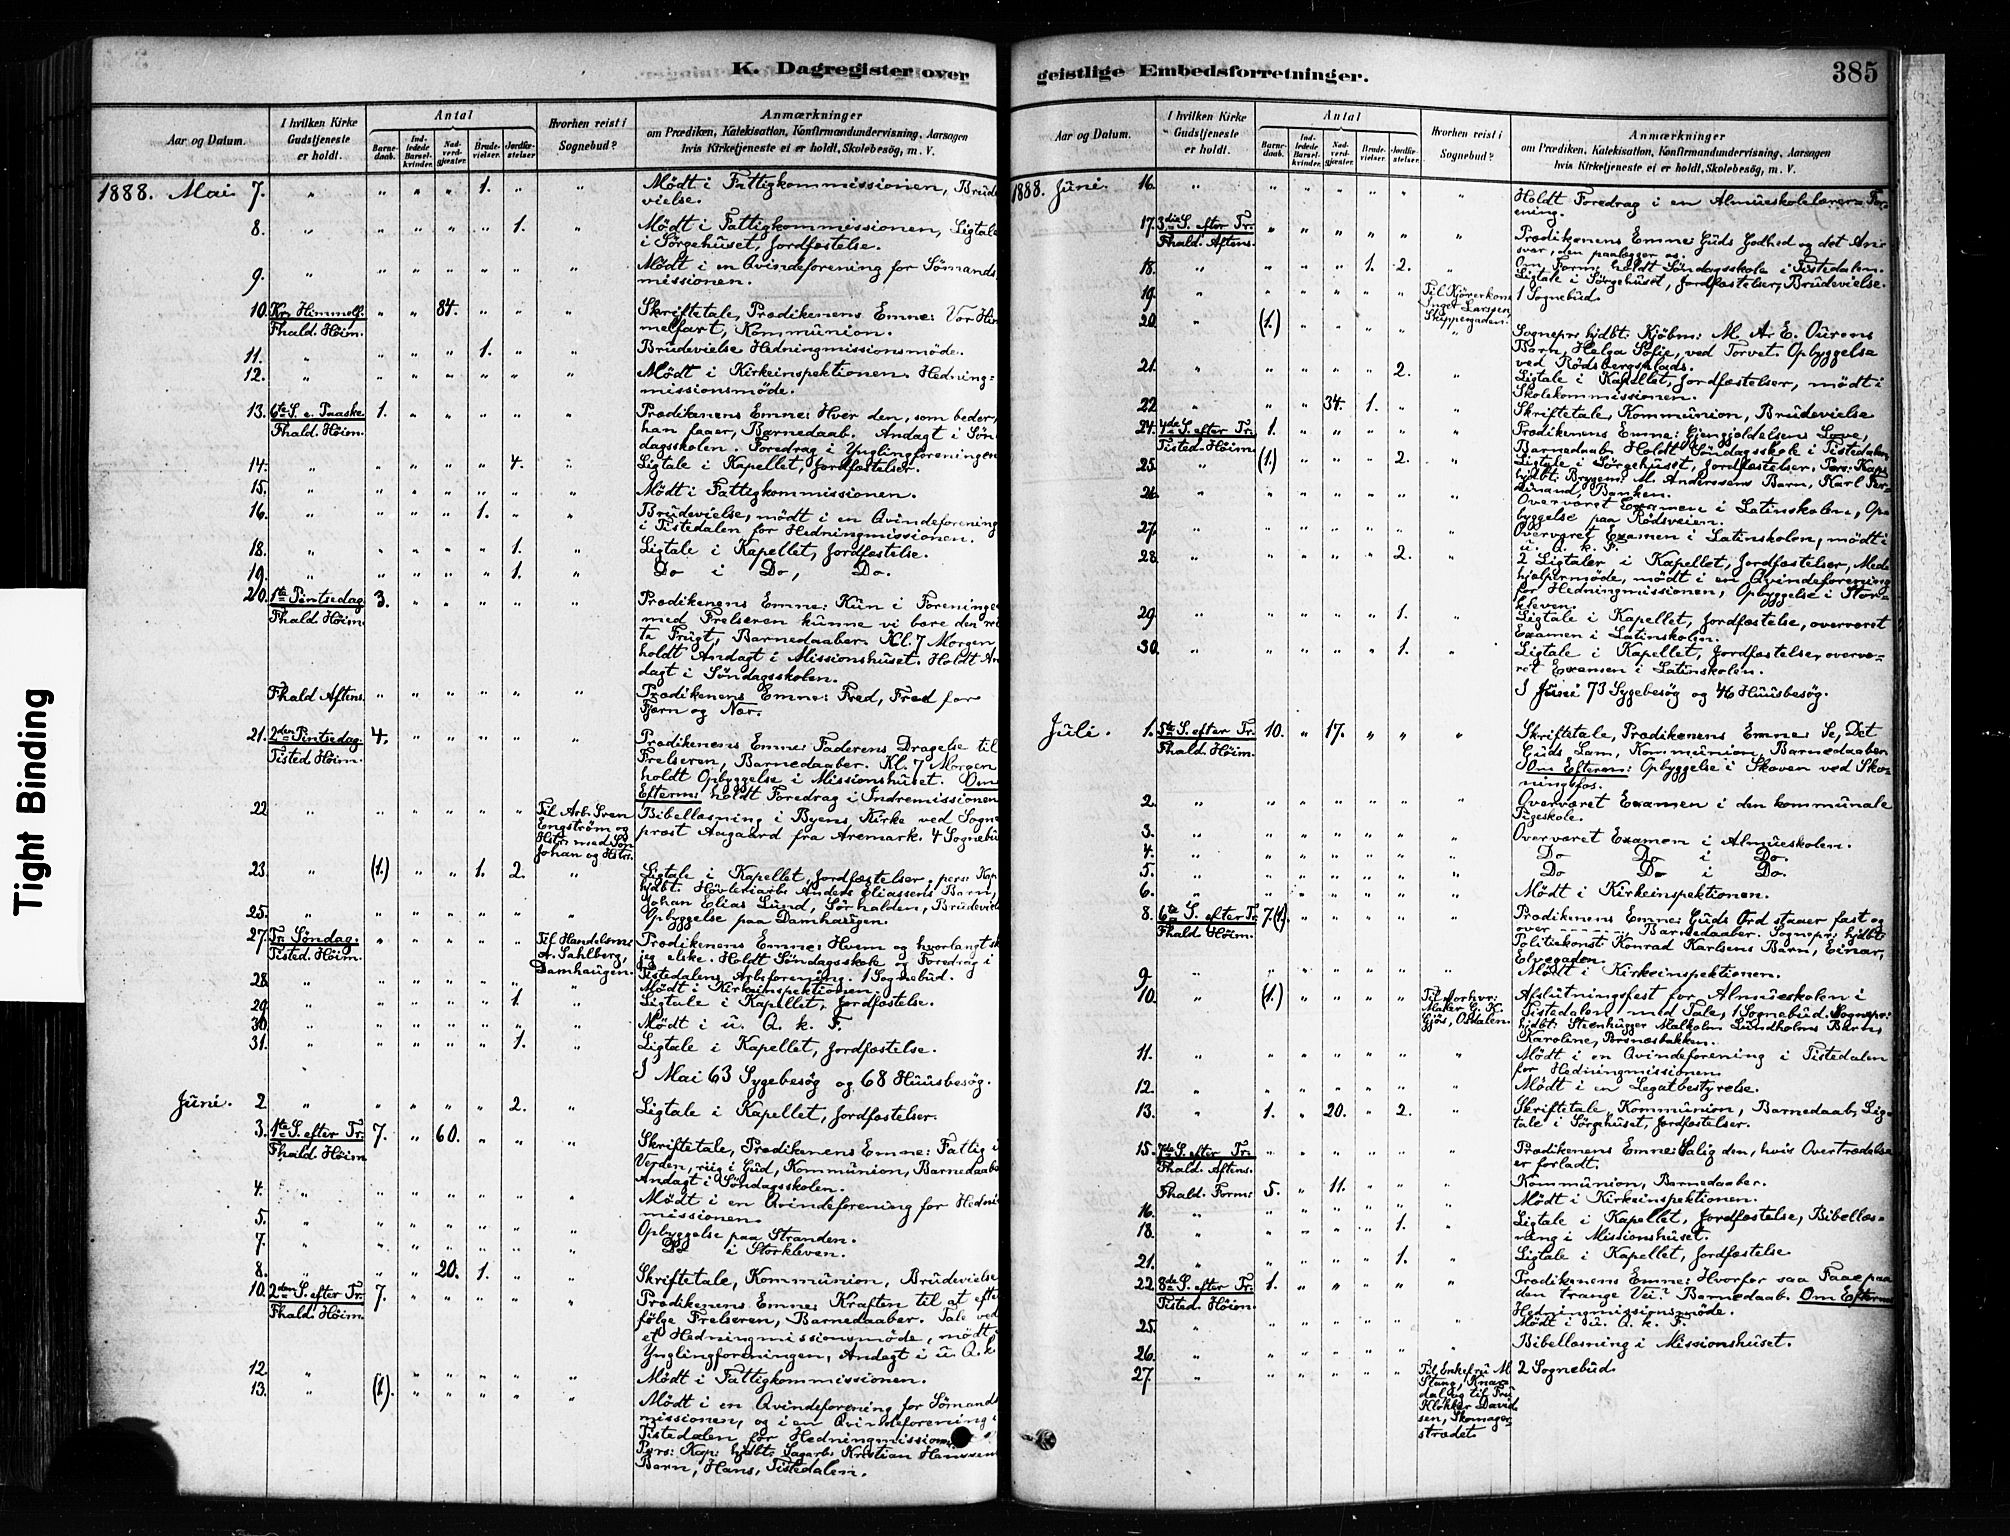 Tight Binding
K. Dagregister over
Aar og Datum.
I hvilken Kirke Gudstjeneste er holdt.
Antal
Barnedaab.
Indledede Barselkvinder.
Nadverdgjester.
Brudevielser.
Jordfæstelser.
Hvorhen reist i Sognebud?
Anmærkninger
om Prædiken, Katekisation, Konfirmandundervisning, Aarsagen
hvis Kirketjeneste ei er holdt, Skolebesøg, m. V.
1888. Mai 7. " " " " 1. " " Mødt i Fattigkommissionen, Brude
vielse.
8. " " " " " 1. " Mødt i Fattigkommissionen, Ligtale
i Sørgehuset, Jordfæstelse.
9. " " " " " " " Mødt i en Qvindeforening for Sømands
missionen.
10. Kr. Himmelf. " " 84. " " " Skriftetale, Prædikenens Emne: Vor Him
Fhald. Høim. melfart, Kommunion.
11. " " " " 1. " " Brudevielse Hedningmissionsmøde.
12. " " " " " " " Mødt i Kirkeinspektionen. Hedning=
missionsmøde.
13. 6te S. e. Paaske. 1. " " " " " Prædikenens Emne: Hver den, som beder,
Fhald. Høim. han faaer, Barnedaab. Andagt i Søn
dagsskolen. Foredrag i Ynglingforeningen
14. " " " " " 4. " Ligtale i Kapellet, Jordfæstelser.
15. " " " " " " " Mødt i Fattigkommissionen.
16. " " " " 1. " " Brudevielse, mødt i en Qvindeforening
i Tistedalen for Hedningmissionen.
18. " " " " " 1. " Ligtale i Kapellet, Jordfæstelse.
19. " " " " " 1. " Do i Do, Do.
20. 1ste Pintsedag 3. " " " " " Prædikenens Emne: Kun i Foreninge
Fhald. Høim. med Frelseren kunne vi bære den ret
te Frugt, Barnedaaber. Kl. 7 Morgen
holdt Andagt i Missionshuset. Holdt An
dagt i Søndagsskolen.
Fhald Aftens. " " " " " " Prædikenens Emne: Fred, Fred for
Fjern og Nær.
21. 2den Pintsedag 4. Prædikenens Emne: Faderens Dragelse til
Tisted. Høim. Frelseren, Barnedaaber. Kl. 7 Morgen
holdt Opbyggelse i Missionshuset. Om
Efterm: holdt Foredrag i Indremissionen
22 " " " " " " Til Arb. Sven Bibellæsning i Byens Kirke ved Sogne
Engström og præst Aagaard fra Aremark. 4 Sognebud
Hstr. med Søn
Johan og Hstr.
23. " (1.) " " 1. 2. " Ligtale i Kapellet, Jordfæstelser, pers: Kap
hjdbt: Høvleriarb: Anders Eliassens Barn,
Johan Elias Lund, Sørhalden, Brudeviel
25. " " " " " " " Opbyggelse paa Damhaugen.
27. Tr. Søndag. " " " " " Til Handelsm: Prædikenens Emne: Hvem og hvorlangt sk
Tisted. Høim. A. Sahlberg, jeg elske. Holdt Søndagsskole og Foredrag i
Damhaugen. Tistedalens Arbforening. 1 Sognebud.
28. " " " " " " " Mødt i Kirkeinspektionen.
29. " " " " " 1. " Ligtale i Kapellet, Jordfæstelse.
30. " " " " " " " Mødt i u. Q. k. F.
31. " " " " " 1. " Ligtale i Kapellet, Jordfæstelse.
I Mai 63 Sygebesøg og 68 Huusbesøg.
Juni. 2. " " " " " 2. " Ligtale i Kapellet, Jordfæstelser.
3. 1ste S. efter Tr. 7. " 60. " " " Skriftetale, Prædikenens Emne: Fattig i
Fhald. Høim Verden, riig i Gud, Kommunion, Barnedaaber
Andagt i Søndagsskolen.
4. " " " " " " " Mødt i en Qvindeforening for Hedni
missionen.
5. " " " " " " " Opbyggelse paa Stranden.
7. " " " " " " " Do i Storkleven.
8. " " " 20. 1. " " Skriftetale, Kommunion, Brudevielse
10. 2den S. efter Tr. 7. " " " " " Prædikenens Emne: Kraften til at efter
Fhald. Høim. følge Frelseren, Barnedaaber. Tale ved
et Hedningmissionsmøde, mødt i
Ynglingforeningen, Andagt i u. Q. k
12. " " " " " " " Mødt i Fattigkommissionen.
13. " (1). " " " " " Mødt i en Qvindeforening for Sømands
missionen, og i en Qvindeforening i
Tistedalen for Hedningmissionen
Pers: Kap: hjdbt: Sagarb. Kristian Hanssens
Barn, Hans, Tistedalen.
geistlige Embedsforretninger.
385
Aar og Datum.
I hvilken Kirke Gudstjeneste er holdt.
Antal
Barnedaab.
Indledede Barselkvinder.
Nadverdgjester.
Brudevielser.
Jordfæstelser.
Hvorhen reist i Sognebud?
Anmærkninger
om Prædiken, Katekisation, Konfirmandundervisning, Aarsagen
hvis Kirketjeneste ei er holdt, Skolebesøg, m. V.
1888. Juni. 16. " " " " " " " Holdt Foredrag i en Almueskolelærer=For
ening.
17. 3die S. efter Tr. " " " " " " Prædikenens Emne: Guds Godhed og det An
Fhald. Aftens. svar, den paalægger os.
Om Form. holdt Søndagsskole i Tistedalen.
18. " " " " 1. 2. " Ligtale i Sørgehuset, Jordfæstelser, Brudevielse
19. " " " " " " Til Kjørerkone 1 Sognebud.
Inger Larssen,
Skippergaden.
20. " (1.) " " " " " Sognepr: hjdbt: Kjøbm: M. Ar E. Ourens
Barn, Helga Sofie, ved Torvet. Opbyggelse
ved Rødsbergsplads.
21. " " " " " 2. " Ligtale i Kapellet, Jordfæstelser, mødt i
Skolekommissionen.
22 " " " 34. 1. " " Skriftetale, Kommunion, Brudevielse
24. 4de S. efter Tr. 1. " " " " " Prædikenens Emne: Gjengjeldelsens Love,
Tisted. Høim. Barnedaab. Holdt Søndagsskole i Tistedalen
25. " (1.) " " " 2. " Ligtale i Sørgehuset, Jordfæstelser. Pers: Kap:
hjdbt: Bryggem. M. Anderssens Barn, Karl Fer=
dinand, Banken.
26. " " " " " " " Overværet Examen i Latinskolen, Op=
byggelse paa Rødsveien.
27. " " " " " " " Overværet Examen i Latinskolen, mødt i
u. Q. k. F.
28. " " " " " 2. " 2 Ligtaler i Kapellet, Jordfæstelser, Med=
hjælpermøde, mødt i en Qvindeforening
for Hedningmissionen, Opbyggelse i Stor=
kleven.
29. " " " " " 1. " Ligtale i Kapellet, Jordfæstelse, overværet
Examen i Latinskolen.
30. " " " " " 1. " Ligtale i Kapellet, Jordfæstelse, overvæ=
ret Examen i Latinskolen.
I Juni 73 Sygebesøg og 46 Huusbesøg.
Juli. 1. 5te S. efter Tr. 10. " 17. " " " Skriftetale, Prædikenens Emne: Se, Det
Fhald. Høim. Guds Lam, Kommunion, Barnedaaber.
Om Efterm: Opbyggelse i Skoven ved Skon=
ningsfos.
2. " " " " " " " Overværet Examen i den kommunale
Pigeskole.
3. " " " " " " " Overværet Examen i Almueskolen.
4. " " " " " " " Do Do i Do.
5. " " " " " " " Do Do i Do.
6. " " " " " " " Mødt i Kirkeinspektionen.
8. 6te S. efter Tr. 7.(1.) " " " " " Prædikenens Emne: Guds Ord staaer fast og
Fhald. Høim. over _ _ _ _ _, Barnedaaber. Sognepr: hjdbt:
Politiekonst Konrad Karlsens Barn, Einar,
Elvegaden.
9. " " " " " " " Mødt i Kirkeinspektionen.
10. " (1.) " " " " Til forhv: Afslutningsfest for Almueskolen i
Maker G. K. Tistedalen med Tale, 1 Sognebud. Sognepr:
Gjøs, Osdalen. hjdbt: Steenhugger Malkolm Lundholms Barn,
Karoline, Bersnæsbakken.
11. " " " " " " " Mødt i en Qvindeforening i Tistedalen
for Hedningmissionen.
12. " " " " " " " Mødt i en Legatbestyrelse.
13. " 1. " 20. " 2. " Skriftetale, Kommunion, Barnedaab, Lig=
tale i Sørgehuset, Jordfæstelser.
15. 7de S. efter Tr. " " " " " " Prædikenens Emne: Salig den, hvis Overtrædelse
Fhald. Aftens. er forladt.
Fhald. Form: 5. " 11. " " Kommunion, Barnedaaber.
16. " " " " " " " Mødt i Kirkeinspektionen.
18. " " " " " 1. " Ligtale i Kapellet, Jordfæstelse, Bibellæs=
ning i Missionshuset.
21. " " " " " 1. " Ligtale i Kapellet, Jordfæstelse
22 8de S. efter Tr. 1. " " " " " Prædikenens Emne: Hvorfor saa Faae paa
Tisted. Høim. den trange Vei? Barnedaab. Om Efterm
Hedningmissionsmøde.
25. " " " " " " " Mødt i u. Q. k. F.
26. " " " " " " " Bibellæsning i Missionshuset.
27. " " " " " " Til Enkefru M. 2 Sognebud.
Stang, Knar=
dal og til Fru
Klokker David
sen, Skomager=
strædet.